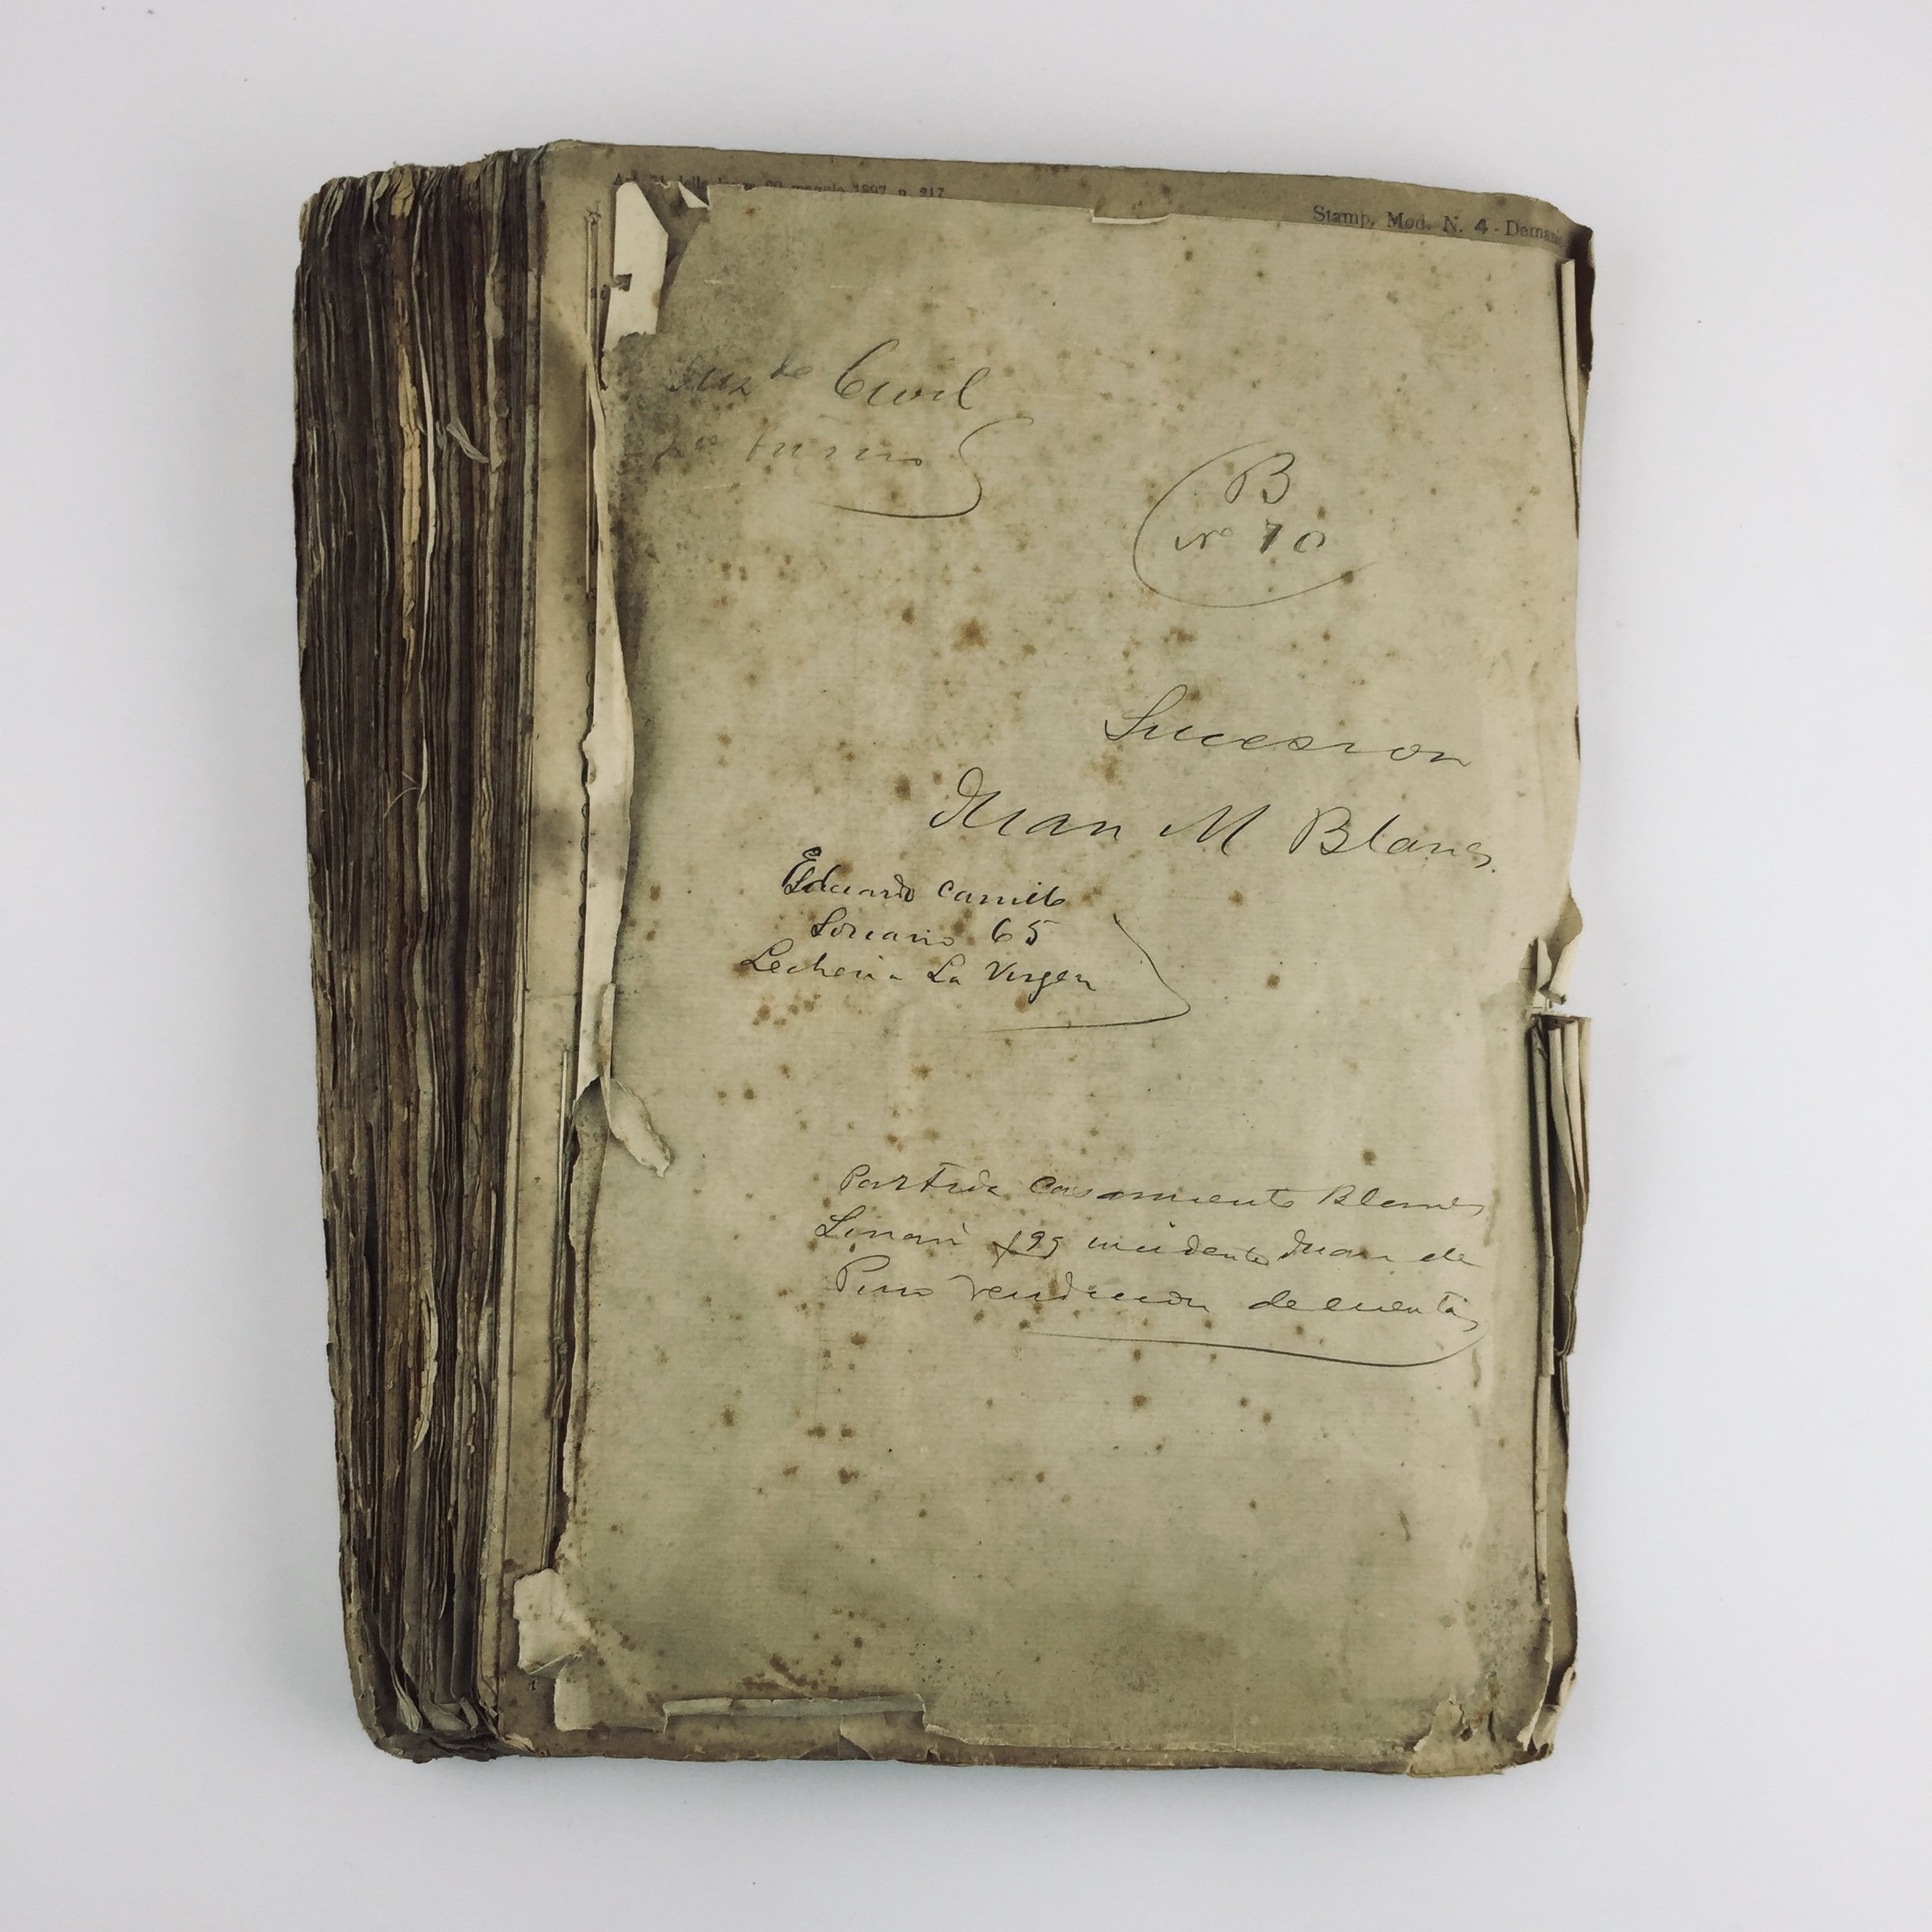 Art. 21 della legge 20 maggio 1897 n. 217
Stamp. Mod. N. 4 - Demanio
Juzdo Civil
turno
B
No 70
Sucesion
Juan M Blanes
Eduardo Camilo
Soriano 65
Lecheria La Virgen
Partida casamiento Blanes
Linari f 99 incidente Juan de
Pino rendicion de cuentas